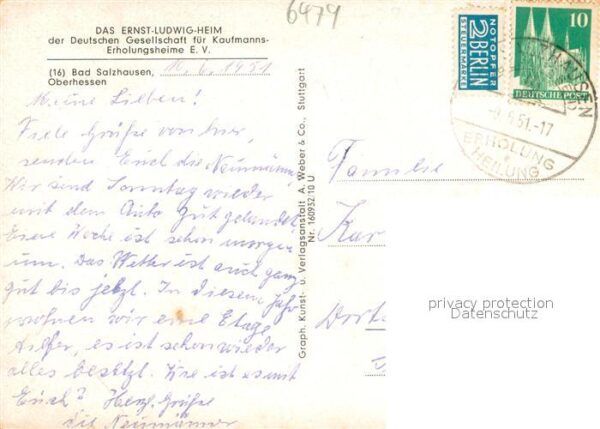 6479
DAS ERNST-LUDWIG-HEIM
der Deutschen Gesellschaft für Kaufmanns-
Erholungsheime E. V.
(16) Bad Salzhausen, 10. 6. 1951
Oberhessen
Meine Lieben!
Viele Grüße von hier,
senden Euch die Neumänner
Wir sind Sonntag wieder
mit dem Auto gut gelandet.
Eine Woche ist schon morgen
um. Das Wetter ist auch ganz
gut bis jetzt. In diesem Jahr
wohnen wir eine Etage
, es ist schon wieder
alles besetzt. Wie ist es mit
Euch? Herzl. Grüße
die Neumänner
Graph. Kunst- u. Verlagsanstalt A. Weber & Co., Stuttgart
Nr. 160932/10 U
NOTOPFER
2 BERLIN
STEUERMARKE
10
DEUTSCHE POST
HAUSEN
6.51.-17
ERHOLUNG
HEILUNG
Familie
Kar
Dort
privacy protection
Datenschutz